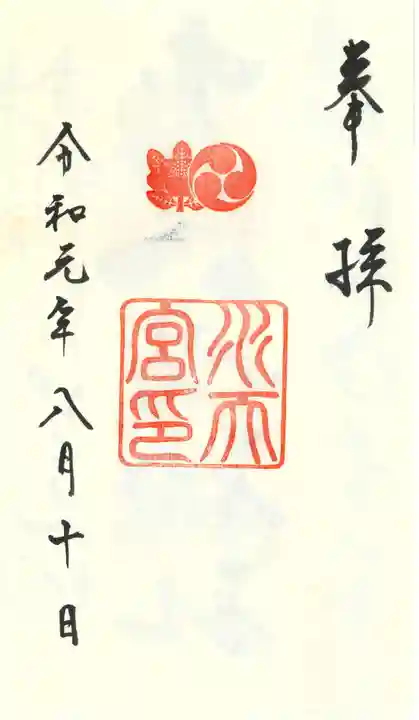 奉拝
水天宮印
令和元年八月十日